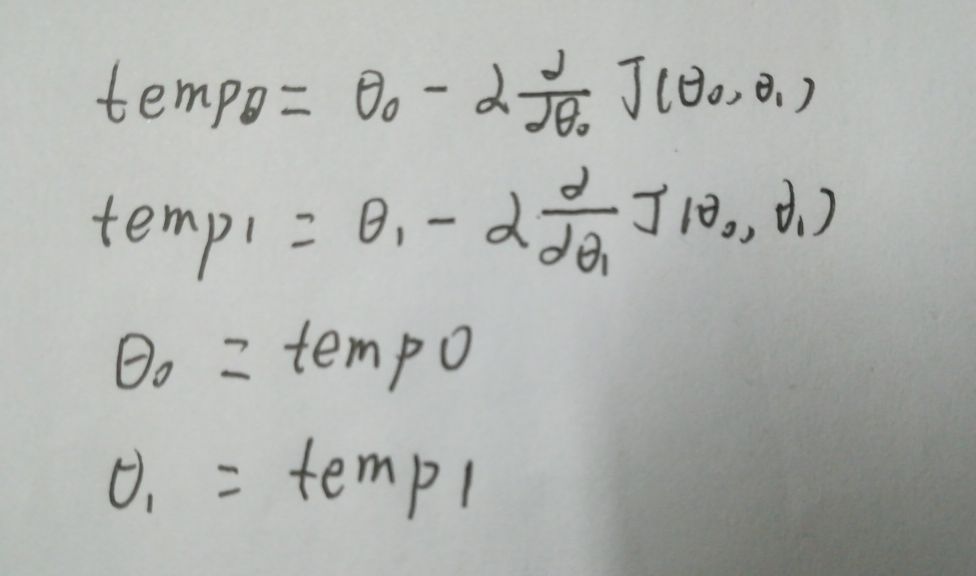 temp0 = θ₀ - α ∂/∂θ₀ J(θ₀, θ₁)
temp1 = θ₁ - α ∂/∂θ₁ J(θ₀, θ₁)
θ₀ = temp0
θ₁ = temp1